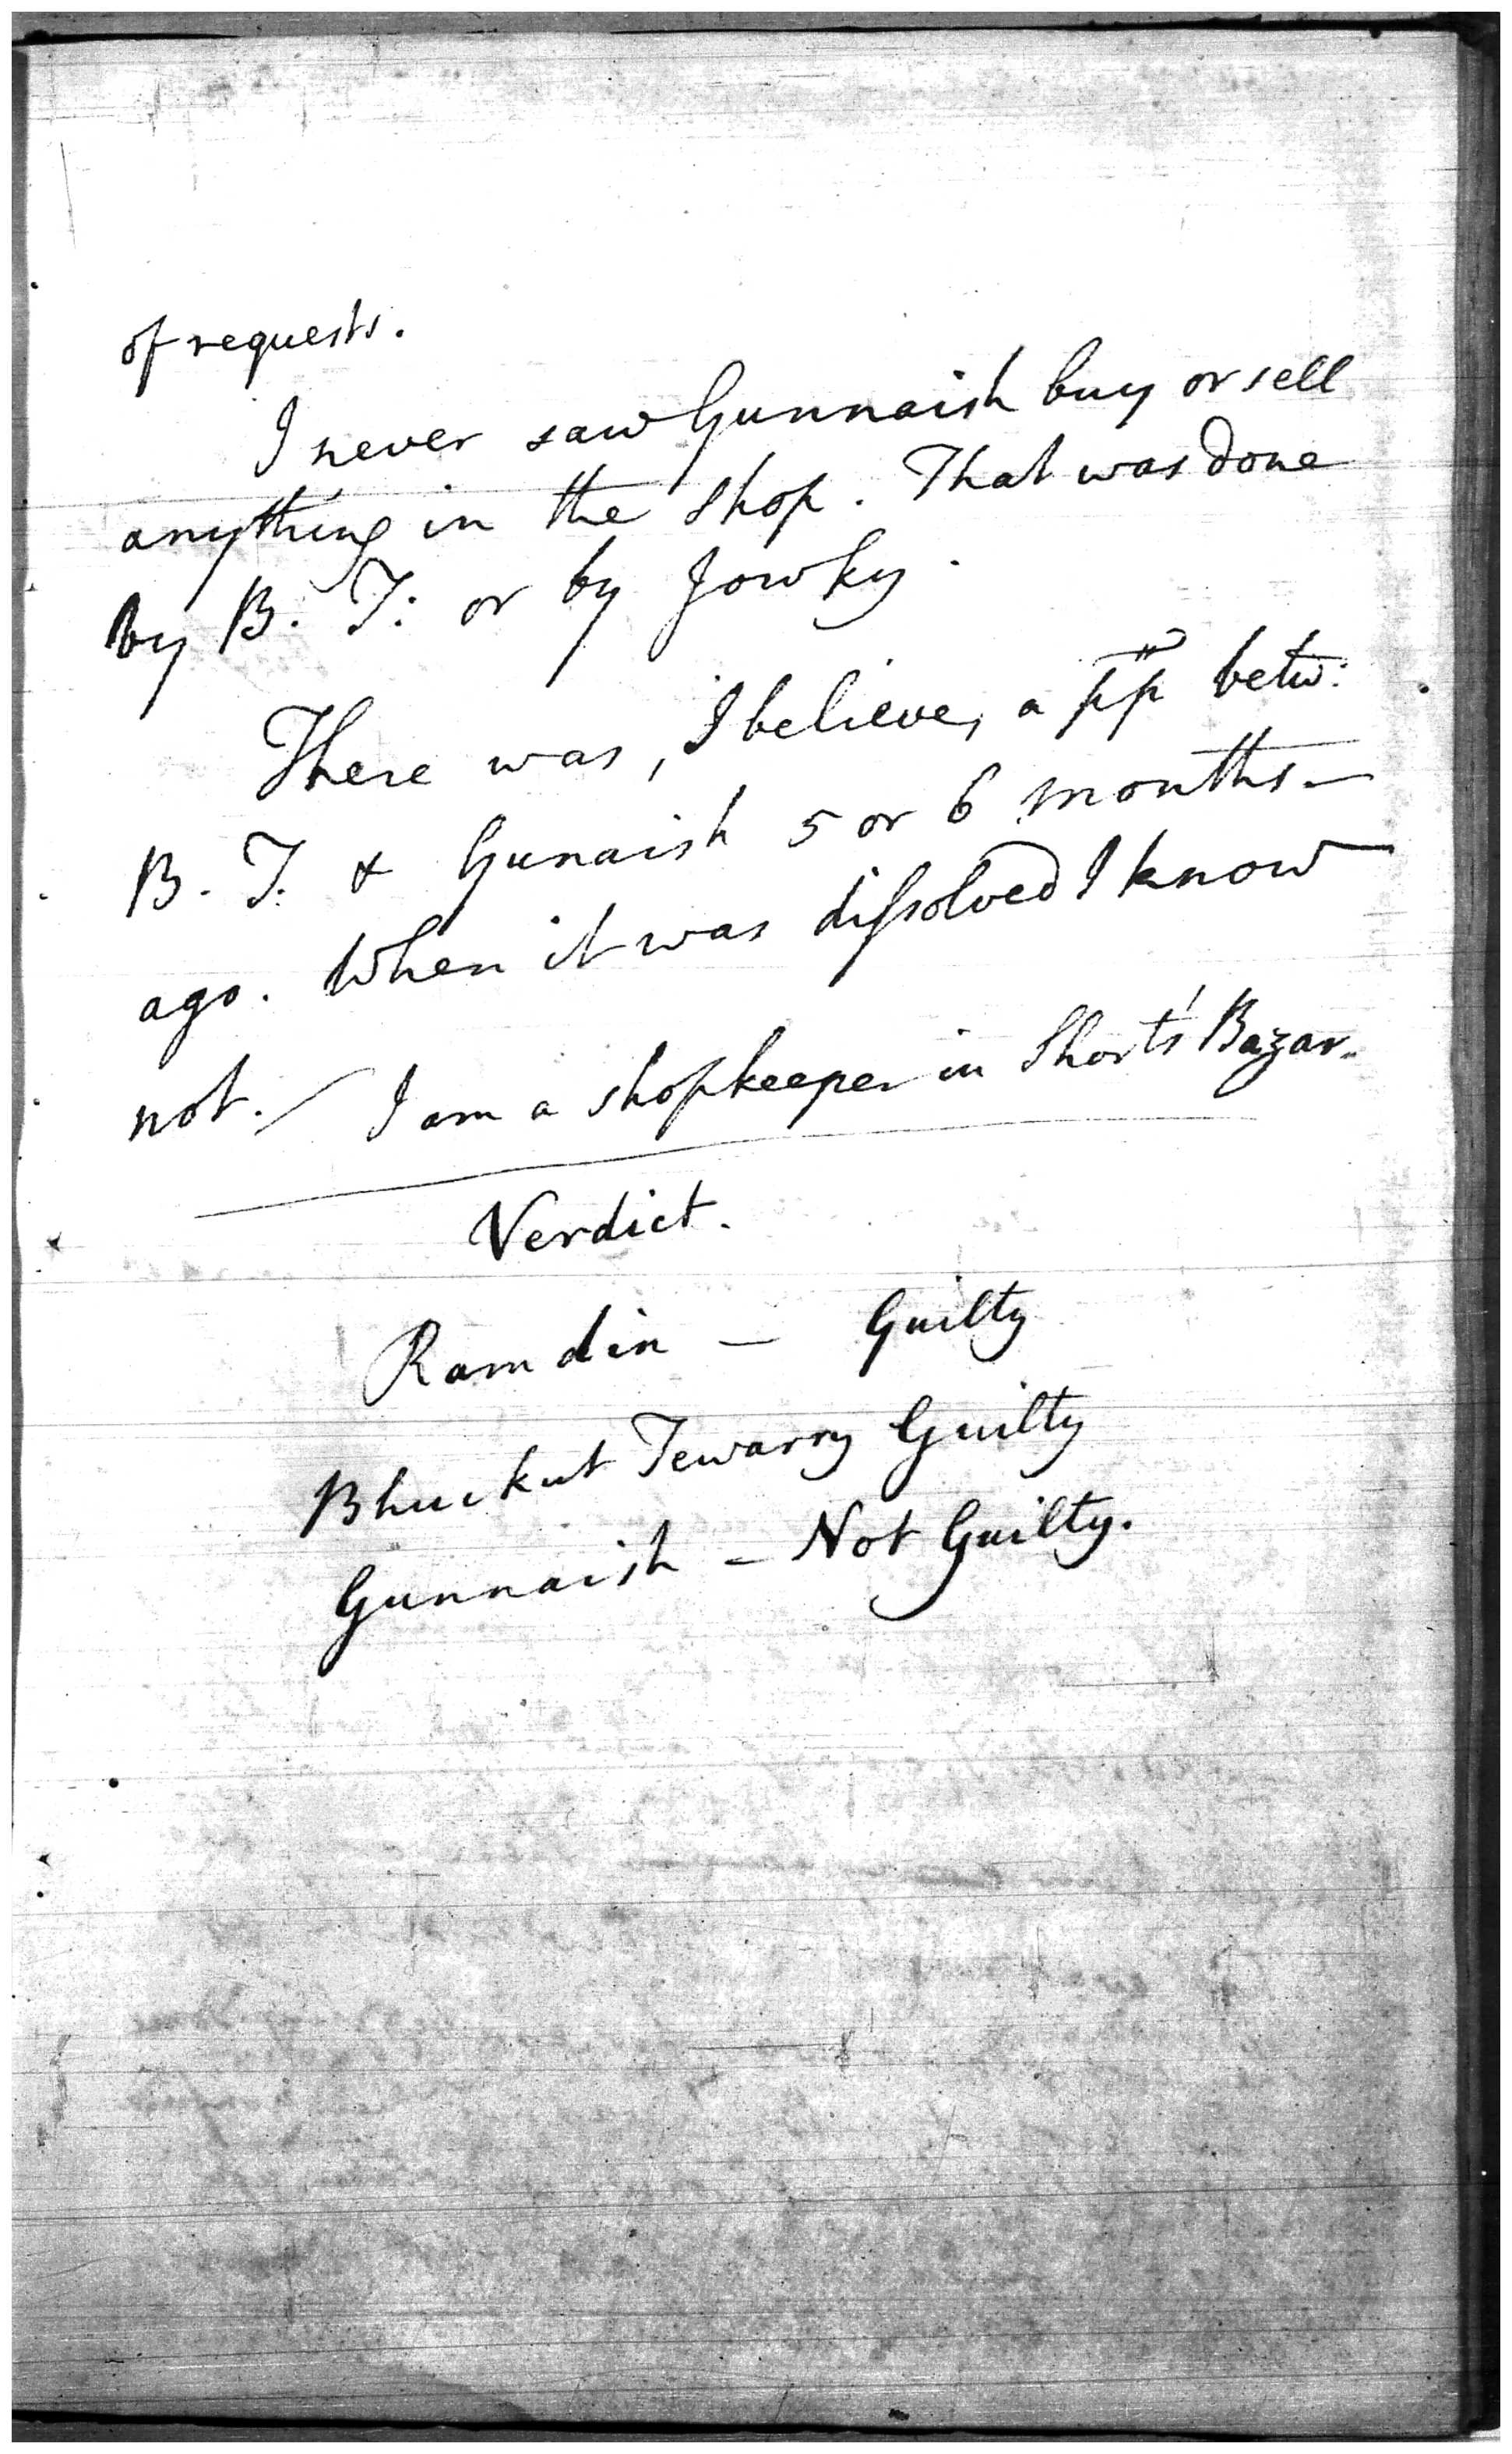 of requests.
I never saw Gunnaish buy or sell
anything in the shop. That was done
by B. T. or by Jowky.
There was, I believe, a pp betw:
B. T. & Gunaish 5 or 6 months
ago. When it was dissolved I know
not. / I am a shopkeeper in Short's Bazar.
Verdict.
Ramdin — Guilty
Bhuckut Tewarry Guilty
Gunnaish — Not Guilty.